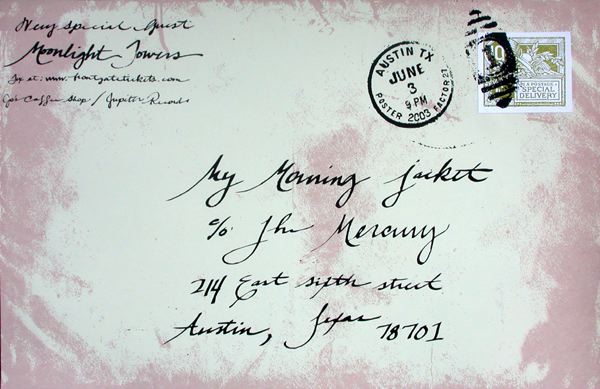 Very special Guest
Moonlight Towers
Tix at: www.frontgatetickets.com
Jo's Coffee Shop / Jupiter Records
AUSTIN TX
JUNE
3
9 PM
POSTER 2003 FACTORY
10
SPECIAL
DELIVERY
My Morning Jacket
c/o The Mercury
214 East sixth street
Austin, Texas 78701